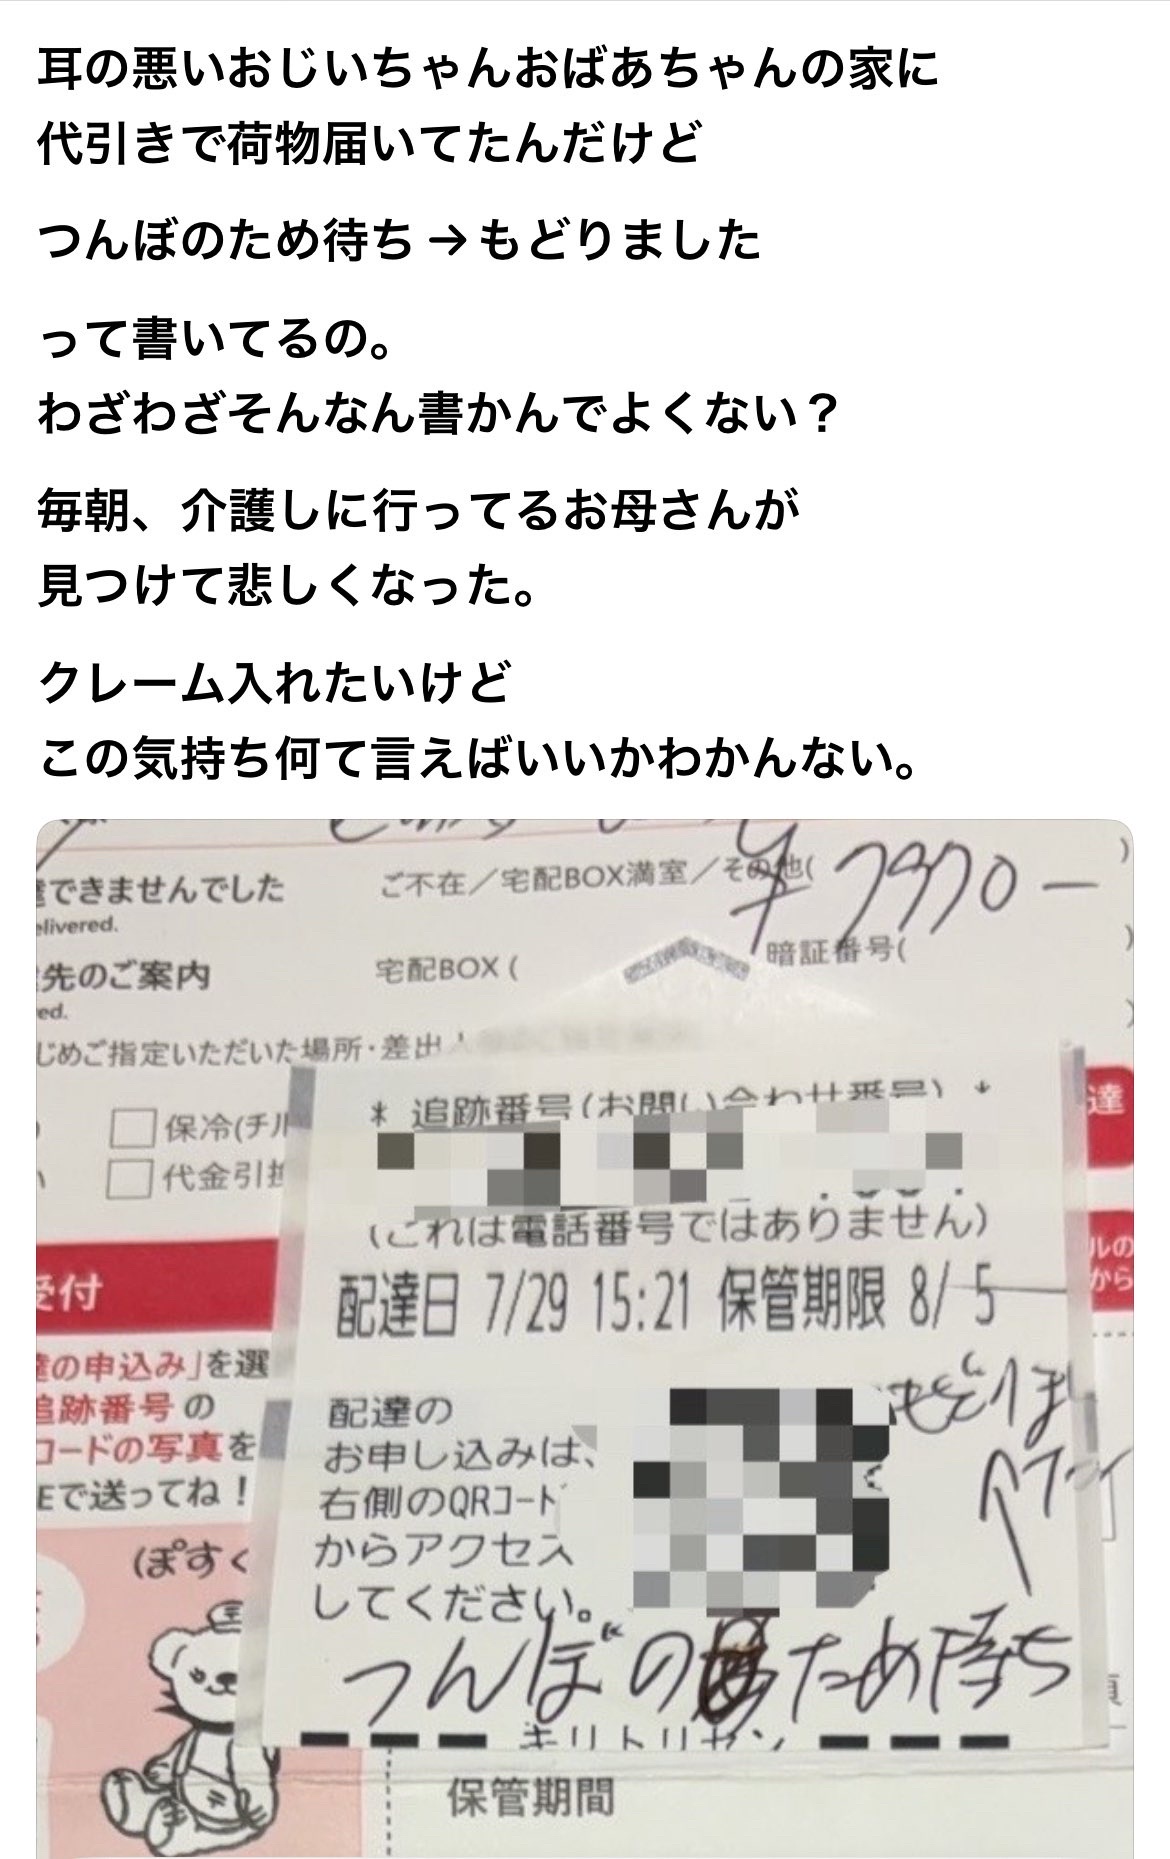 耳の悪いおじいちゃんおばあちゃんの家に
代引きで荷物届いてたんだけど
つんぼのため待ち→もどりました
って書いてるの。
わざわざそんなん書かんでよくない？
毎朝、介護しに行ってるお母さんが
見つけて悲しくなった。
クレーム入れたいけど
この気持ち何て言えばいいかわかんない。
できませんでした
ご不在／宅配BOX満室／その他(
¥7970ー
)
elivered.
先のご案内
宅配BOX (
暗証番号(
)
ed.
じめご指定いただいた場所・差出人
)
* 追跡番号(お問い合わせ番号) *
達
保冷(チル
代金引換
(これは電話番号ではありません)
配達日 7/29 15:21 保管期限 8/ 5
受付
ルの
から
達の申込み」を選
追跡番号の
コードの写真を
Eで送ってね！
配達の
お申し込みは、
右側のQRコード
からアクセス
してください。
(ぽすく
つんぼの ため待ち
キリトリセン
保管期間